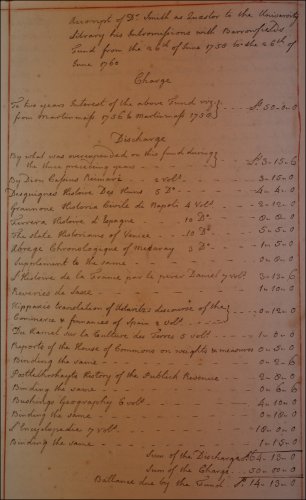 Accompt of Dr. Smith as Quæstor to the University
Library his Intromissions with Barronfields
Fund from the 26th of June 1750 to the 26th of
June 1760
Charge
To two years Interest of the above Fund viz.
from Martinmass 1756 to Martinmass 1758 } £. 50-0-0
Discharge
By what was overexpended on this fund during
the three preceeding years } £. 3-15-6
By Dion Cassius Reimari 2 Voll 3-15-0
Desguignes Histoire Des Huns 5 Do. 4-4-0
Giannone Historia Civile di Napoli 4 Voll. 2-12-0
Ferrera Histoire d'Espagne 10 Do.
The State Historians of Venice 10 Do. 5-5-0
Abrege Chronologique of Mezeray 3 Do. 1-5-0
Supplement to the same
L'Histoire de la France par le pere Daniel 17 voll 3-13-6
Reveries de Saxe 1-10-0
Hippisley's translation of Ustariz's discourse of the
Commerce & finnances of Spain 2 Voll } 0-12-0
Du Hamel sur la Culture des Terres 5 voll 1-0-0
Reports of the House of Commons on weights & measures 0-5-0
Binding the same 0-2-6
Postlethwayte History of the Publick Revenue 2-2-0
Binding the same 0-6-6
Bushings Geography 6 voll 4-10-0
Binding the same 0-18-0
L'Encyclopedie 7 voll 18-0-0
Binding the same 1-15-0
Sum of the Discharge £. 64-13-0
Sum of the Charge 50-00-0
Ballance due by the Fund £. 14-13-0